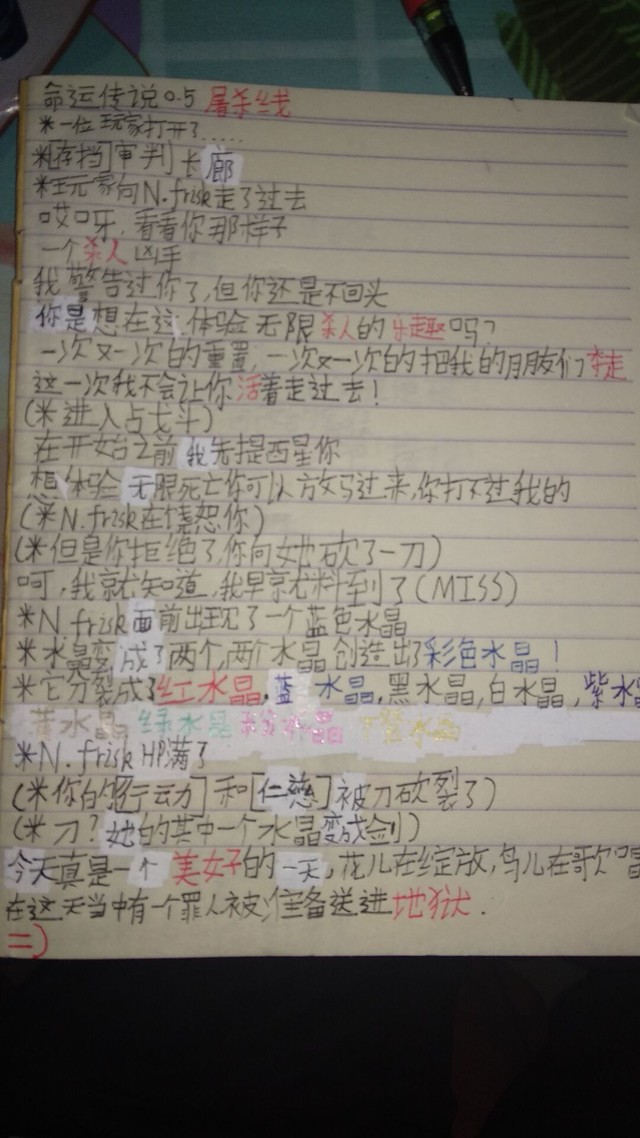 命运传说0.5 屠杀线
*一位玩家打开了.....
*[存挡]审判]长廊
*玩家向N.frisk走了过去
哎呀,看看你那样子
一个杀人凶手
我警告过你了,但你还是不回头
你是想在这体验无限杀人的乐趣吗?
一次又一次的重置,一次又一次的把我的朋友们夺走
这一次我不会让你活着走过去!
(*进入占戈斗)
在开始之前我先提西星你
想体验无限死亡你可以放马过来,你打不过我的
(*N.frisk在饶恕你)
(*但是你拒绝了,你向她砍了一刀)
呵,我就知道,我早就料到了(MISS)
*N.frisk面前出现了一个蓝色水晶
*水晶变成了两个,两个水晶创造出了彩色水晶!
*它分裂成了红水晶,蓝水晶,黑水晶,白水晶,紫水晶
黄水晶 绿水晶 粉水晶 橙水晶
*N.frisk HP满了
(*你的[行动]和[仁慈]被刀砍裂了)
(*刀?她的其中一个水晶变成剑)
今天真是一个美女子的一天,花儿在绽放,鸟儿在歌唱
在这天当中有一个罪人被准备送进地狱.
=)